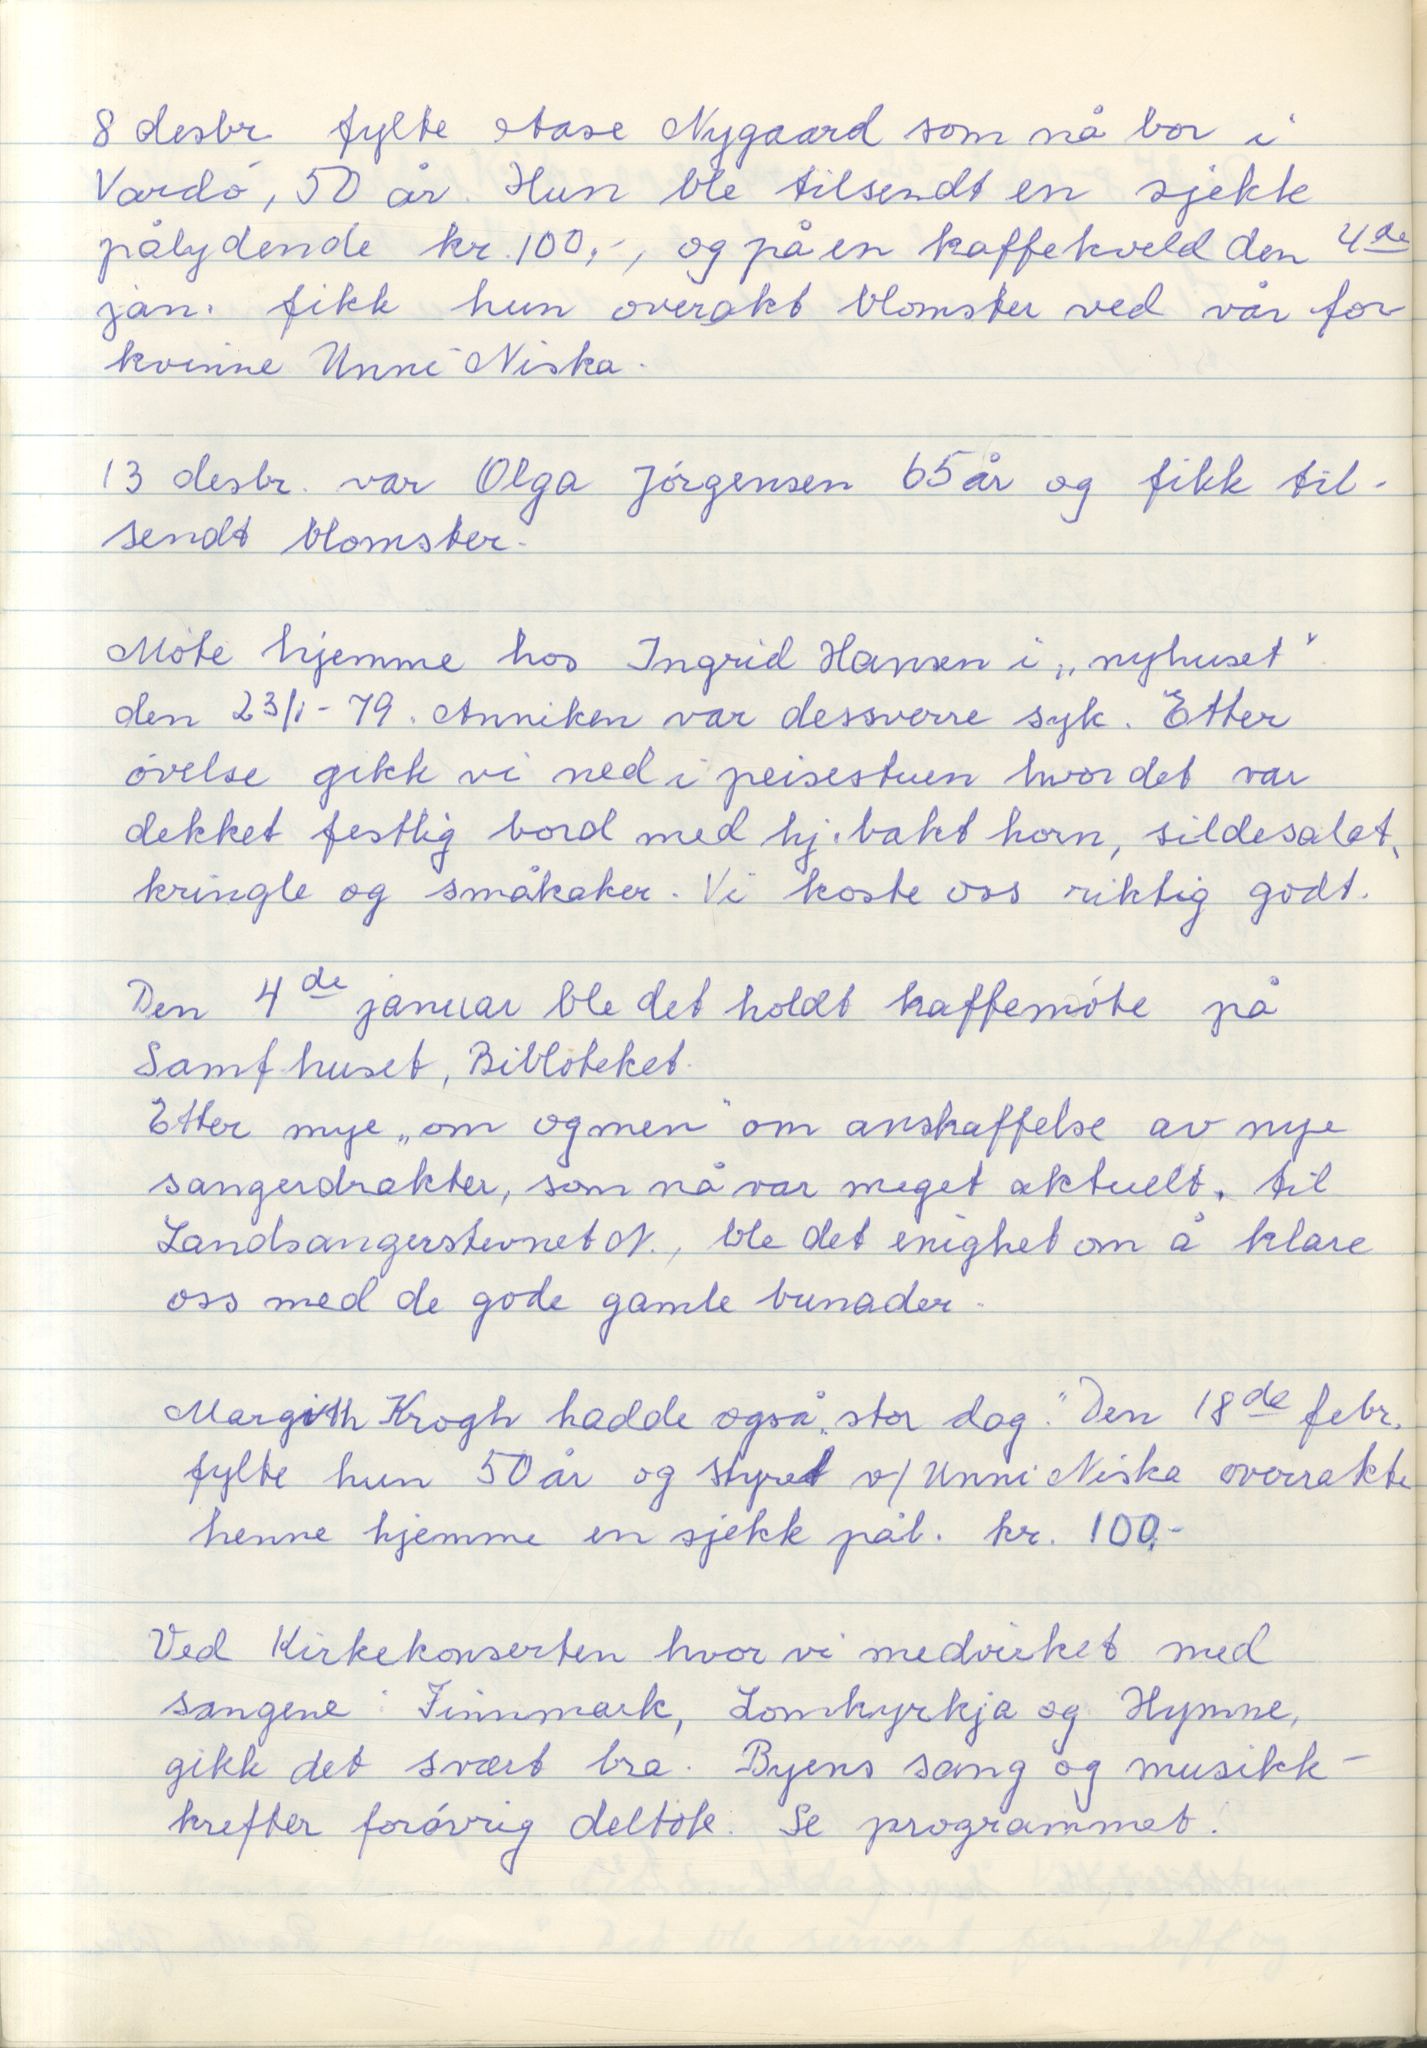 8 desbr fylte Aase Nygaard som nå bor i
Vardö, 50 år. Hun ble tilsendt en sjekk
pålydende kr. 100,-, og på en kaffekveld den 4de
jan. fikk hun overakt blomster ved vår for
kvinne Unni Niska.
13 desbr. var Olga Jörgensen 65 år og fikk til-
sendt blomster.
Möte hjemme hos Ingrid Hansen i „nyhuset"
den 23/1-79. Anniken var dessverre syk. Etter
övelse gikk vi ned i peisestuen hvor det var
dekket festlig bord med hj.bakt horn, sildesalat,
kringle og småkaker. Vi koste oss riktig godt.
Den 4de januar ble det holdt kaffemöte på
Samf huset, Bibloteket.
Etter mye „om og men" om anskaffelse av nye
sangerdrakter, som nå var meget aktuelt, til
Landsangerstevnet N., ble det enighet om å klare
oss med de gode gamle bunader.
Margith Krogh hadde også „stor dag." Den 18de febr.
fylte hun 50 år og styret v/ Unni Niska overrakte
henne hjemme en sjekk pål. kr. 100,-
Ved Kirkekonserten hvor vi medvirket med
sangene: Finnmark, Lomkyrkja og Hymne,
gikk det svært bra. Byens sang og musikk-
krefter forövrig deltok. Se programmet.